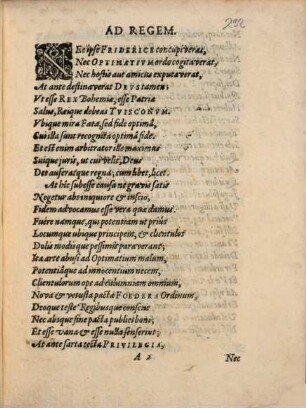 292
AD REGEM.
NEc ipse FRIDERICE concupiveras,
Nec OPTIMATIUM ordo cogitaverat,
Nec hostis aut amicus exputaverat,
At ante destinaverat DEUS tamen:
Ut esse REX Bohemiæ, esse Patriæ
Salus, Reique debeas TUISCORUM.
Ubique mira Fata, sed fide optimâ,
Cui illa sunt recognita optimâ fide.
Et est enim arbitrator ille maximus
Suique juris, ut cui velit, Deus
Det auferatque regna; cum libet, licet.
At hic subesse causa ne gravis satis
Negetur ab iniquiore & inscio,
Fidem advocamus esse vera quæ damus.
Fuere namque, qui potentiam ut prius
Locumque ubique principent, & clientulos
Dolis modisque pessimis paraverant;
Ita arte abusi ad Optimatium malum,
Potentiâque ad innocentium necem,
Clientulorum ope ad calumniam omnium,
Nova & vetusta pacta FOEDERA Ordinum,
Deoque teste Regibusque consciis
Nec absque fine pacta publici boni,
Et esse vana & esse nulla senserint;
At ante sarta tecta PRIVILEGIA,
A 2
Nec